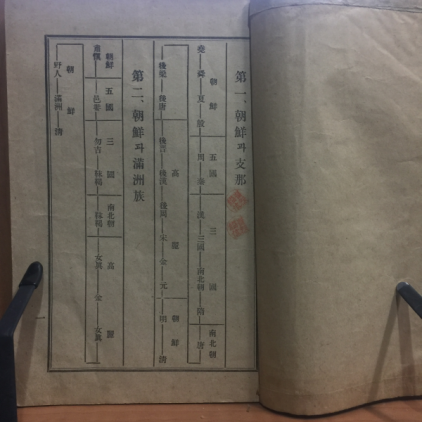 第一、朝鮮과支那
朝鮮 五國 三國 南北朝
堯―舜―夏―殷―周―秦―漢―三國―南北朝―隋―唐
高麗 朝鮮
後梁―後唐―後晉―後漢―後周―宋―金―元―明―淸
第二、朝鮮과滿洲族
朝鮮 五國 三國 南北朝 高麗
肅愼―邑婁―勿吉―靺鞨―靺鞨―女眞―金―女眞
朝鮮
野人―滿洲―淸
一